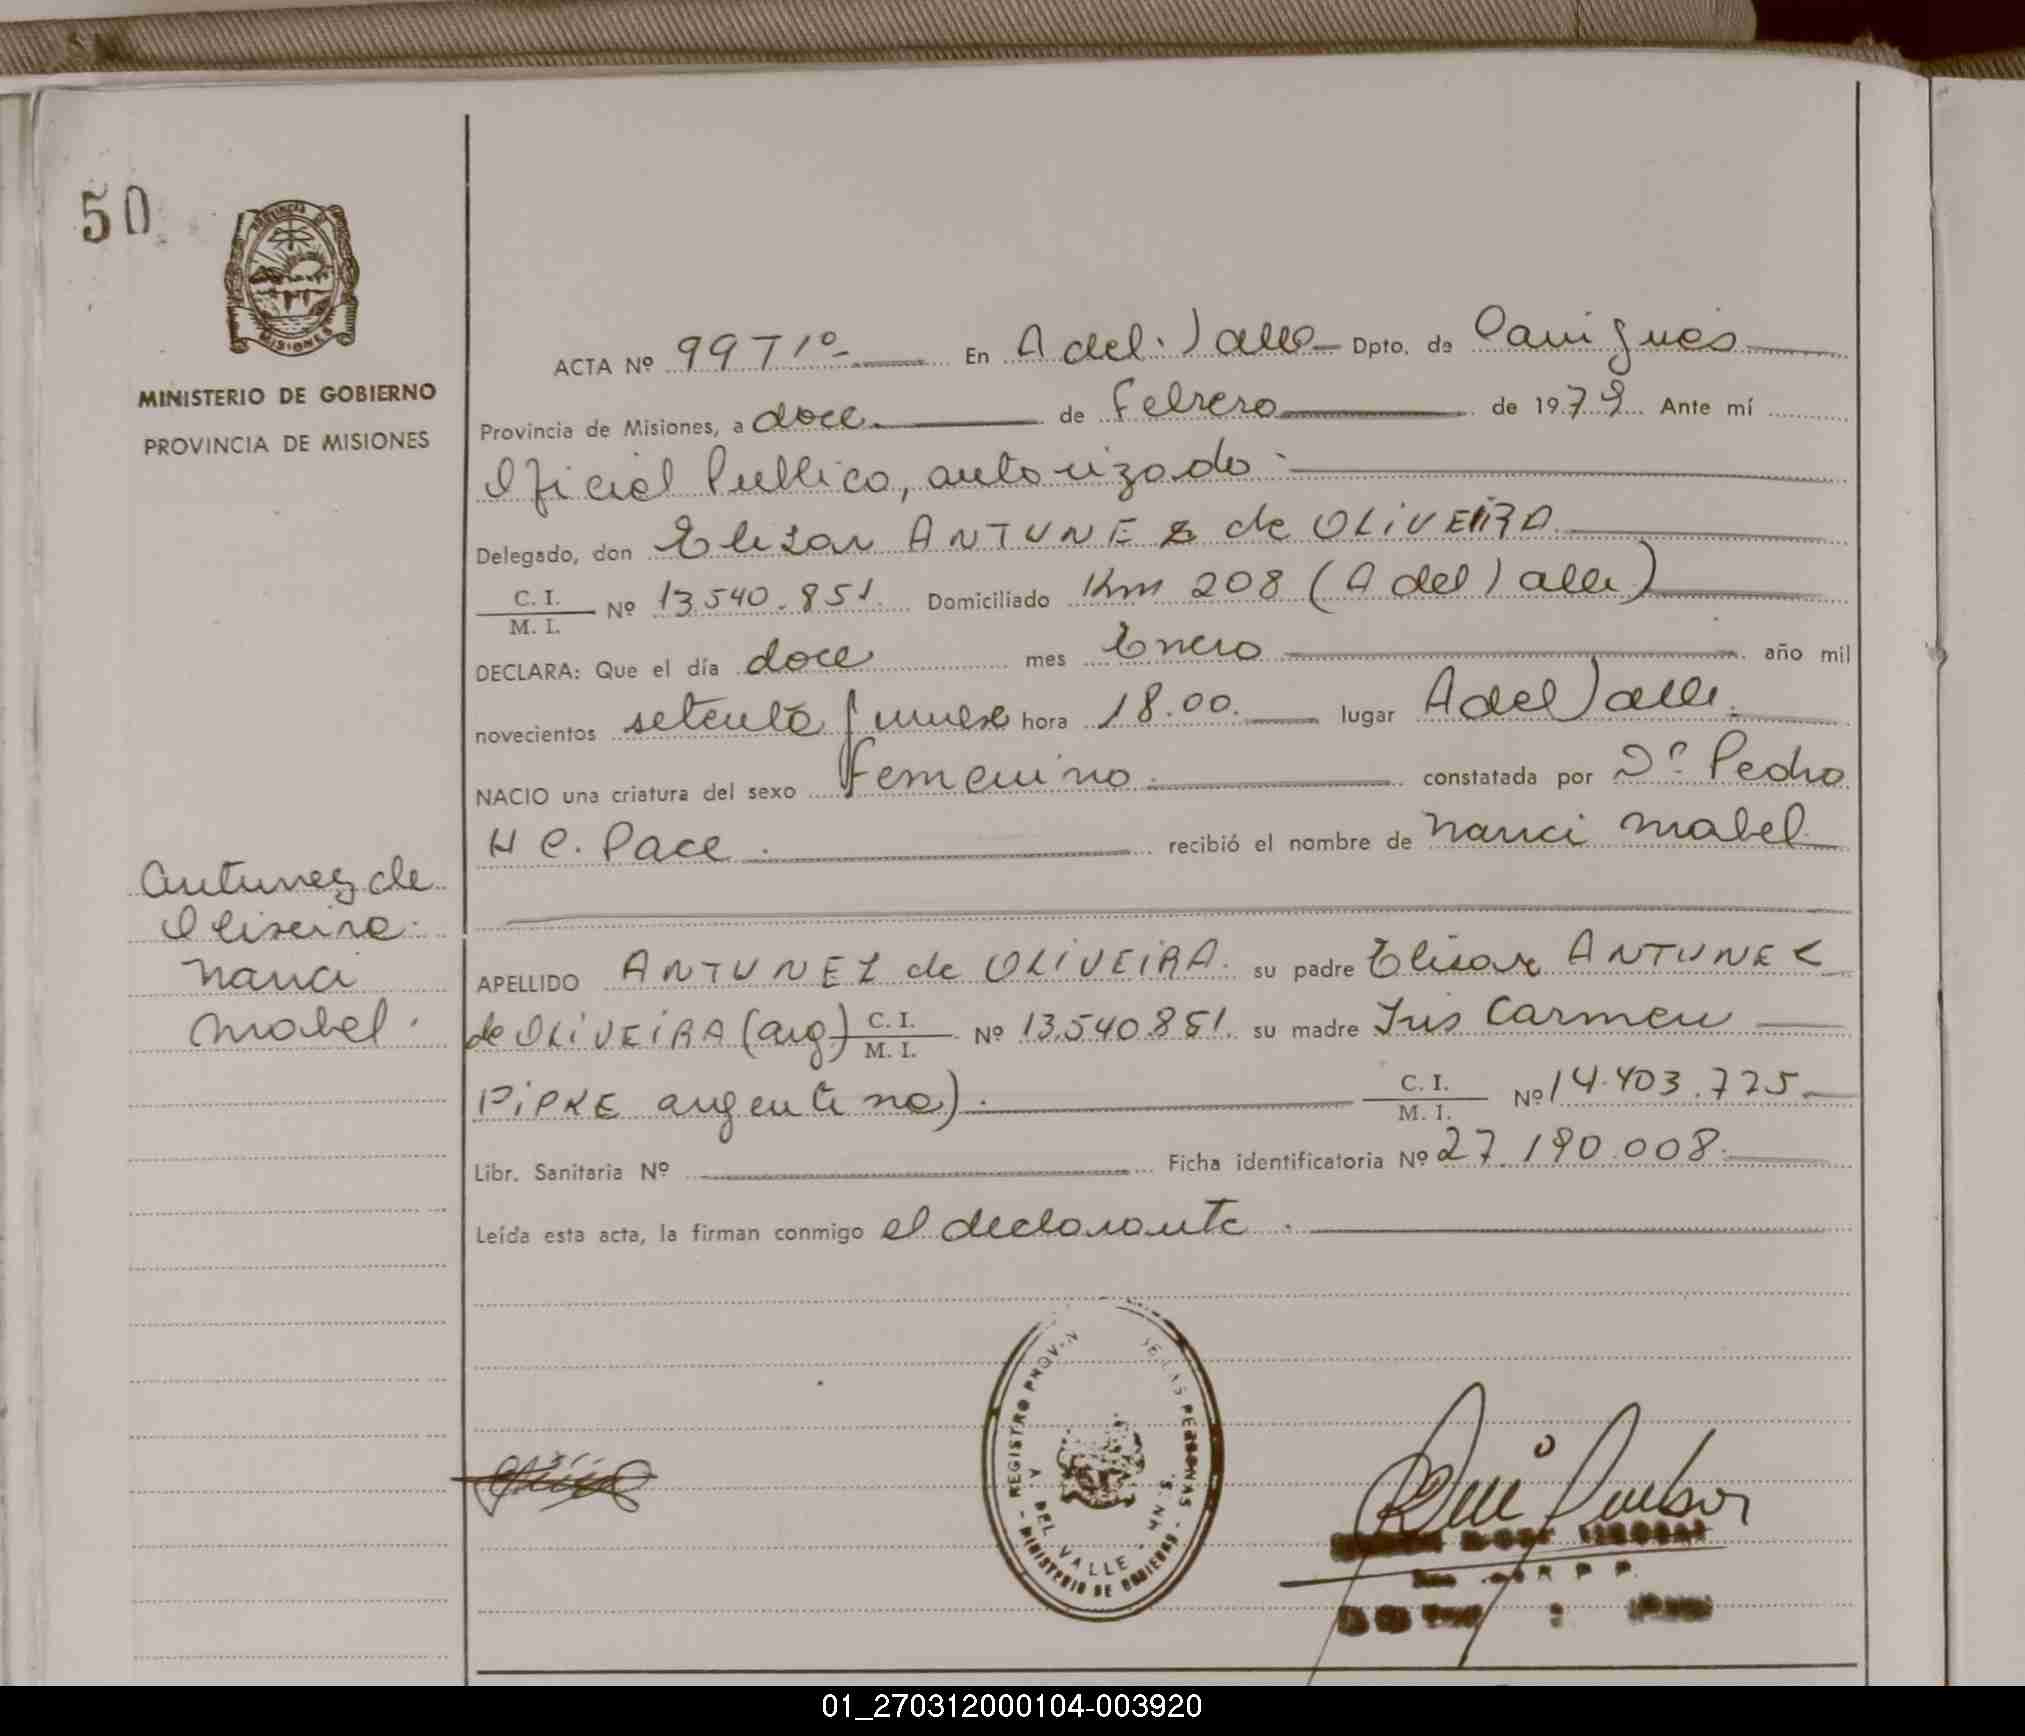 50
PROVINCIA DE
MISIONES
MINISTERIO DE GOBIERNO
PROVINCIA DE MISIONES
ACTA Nº 997 1º En A del Valle Dpto. de Cainguás
Provincia de Misiones, a doce de Febrero de 1979 Ante mí
Oficial Publico, autorizado
Delegado, don Elizar ANTUNEZ de OLIVEIRA
C. I.
M. I. Nº 13.540.851 Domiciliado Km 208 (A del Valle)
DECLARA: Que el día doce mes Enero año mil
novecientos setenta y nueve hora 18.00 lugar A del Valle.
NACIO una criatura del sexo Femenino. constatada por Dº Pedro
H C. Pace. recibió el nombre de Nanci Mabel
Antunez de
Oliveira
Nanci
Mabel.
APELLIDO ANTUNEZ de OLIVEIRA. su padre Elisar ANTUNEZ
de OLIVEIRA (arg) C. I.
M. I. Nº 13.540.851. su madre Iris Carmen
PiPKE argentina). C. I.
M. I. Nº 14.403.775
Libr. Sanitaria Nº Ficha identificatoria Nº 27.190.008.
Leída esta acta, la firman conmigo el declarante.
REGISTRO PROVIN DE LAS PERSONAS
A. DEL VALLE - MNS.
- MINISTERIO DE GOBIERNO -
01_270312000104-003920